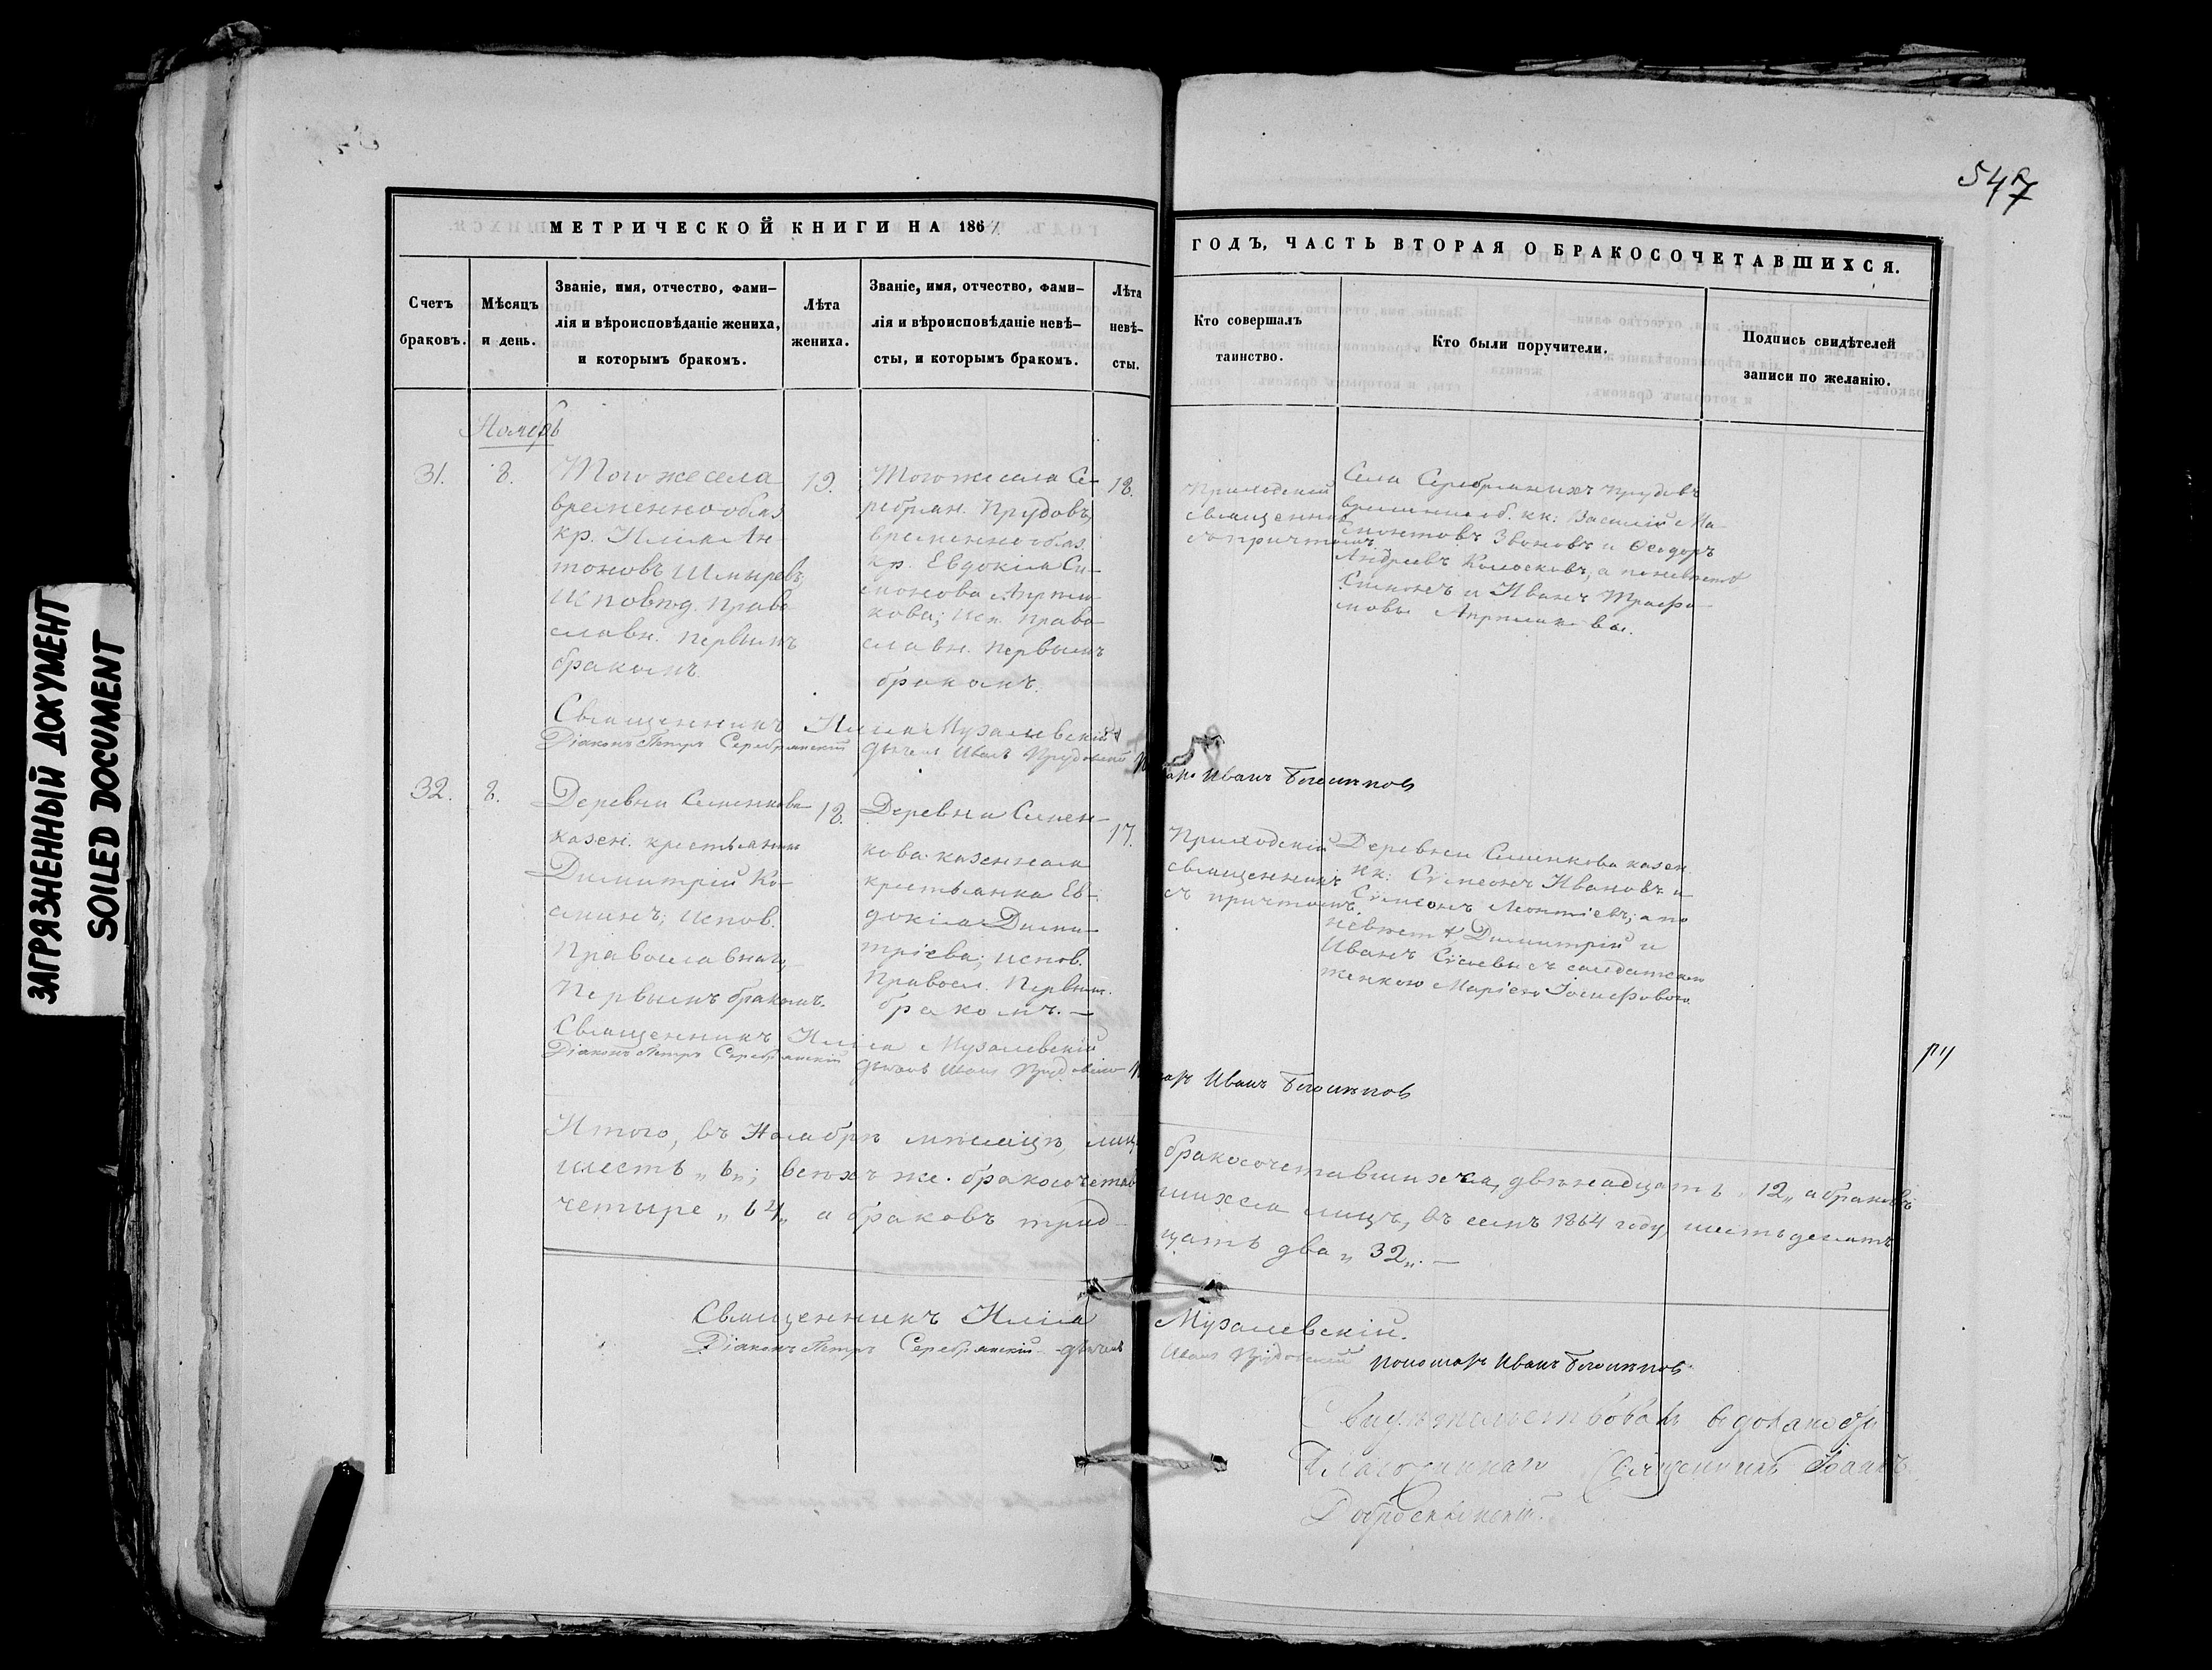 547
МЕТРИЧЕСКОЙ КНИГИ НА 186
ГОДЪ, ЧАСТЬ ВТОРАЯ О БРАКОСОЧЕТАВШИХСЯ.
Счетъ
браковъ.
Мѣсяцъ
и день.
Званіе, имя, отчество, фами-
лія и вѣроисповѣданіе жениха,
и которымъ бракомъ.
Лѣта
жениха.
Званіе, имя, отчество, фами-
лія и вѣроисповѣданіе невѣ-
сты, и которымъ бракомъ.
Лѣта
невѣ-
сты.
Кто совершалъ
таинство.
Кто были поручители.
Подпись свидѣтелей
записи по желанію.
31.
8.
Тогоже села
временнообяз
кр. Илия Ан-
тоновъ Шмыревъ,
Исповѣд. Право
славн. первымъ
бракомъ.
19.
Тогоже села Се-
ребрян. Прудовъ,
временнообяз.
кр. Евдокія Си-
монова
кова; Исп. право
славн. первымъ
бракомъ.
18.
Приходскій
священникъ
съ причтомъ
Села Серебряныхъ Прудовъ
временно об. кк: Василій Ма-
монтовъ Звоновъ и Ѳеодоръ
Андреевъ Колосковъ, а по невѣстѣ
Симонъ и Иванъ Трофи-
мовы
Священникъ Илия Музалевскій
Діаконъ Петръ Серебрянскій дьячекъ Иванъ Прудовскій
Иванъ
32.
8.
Деревни Семенкова
казен. крестьянинъ
Димитрій Ко-
сминъ; испов.
Православнаго,
Первымъ бракомъ.
18.
Деревни Семен-
кова казенная
крестьянка Ев-
докія Дими-
тріева; испов.
Правосл. Первым.
бракомъ.—
17.
Приходскій
священникъ
съ причтомъ.
Деревни Семенкова казен
кк: Сімеонъ Ивановъ и
Сімеонъ Леонтіевъ; а по
невѣстѣ Димитрій и
Иванъ с солдатскою
женкою Маріею Іосифовою
Священникъ Илія Музалевскій
Діаконъ Петръ Серебрянскій дьячекъ Иванъ
Иванъ
Итого, въ Ноябрѣ мѣсяцѣ, лицъ бракосочетавшихся, двѣнадцать „12„ а браковъ
шесть „6„; всѣхъ же бракосочетавшихся лицъ, въ семъ 1864 году, шестьдесятъ
четыре „64„ а браковъ тридцать два „32„.—
Священникъ Илія Музалевскій.
Діаконъ Петръ Серебрянскій дьячекъ Иванъ Прудовскій Пономарь Иванъ
Священникъ Іоаннъ
ЗАГРЯЗНЕННЫЙ ДОКУМЕНТ
SOILED DOCUMENT